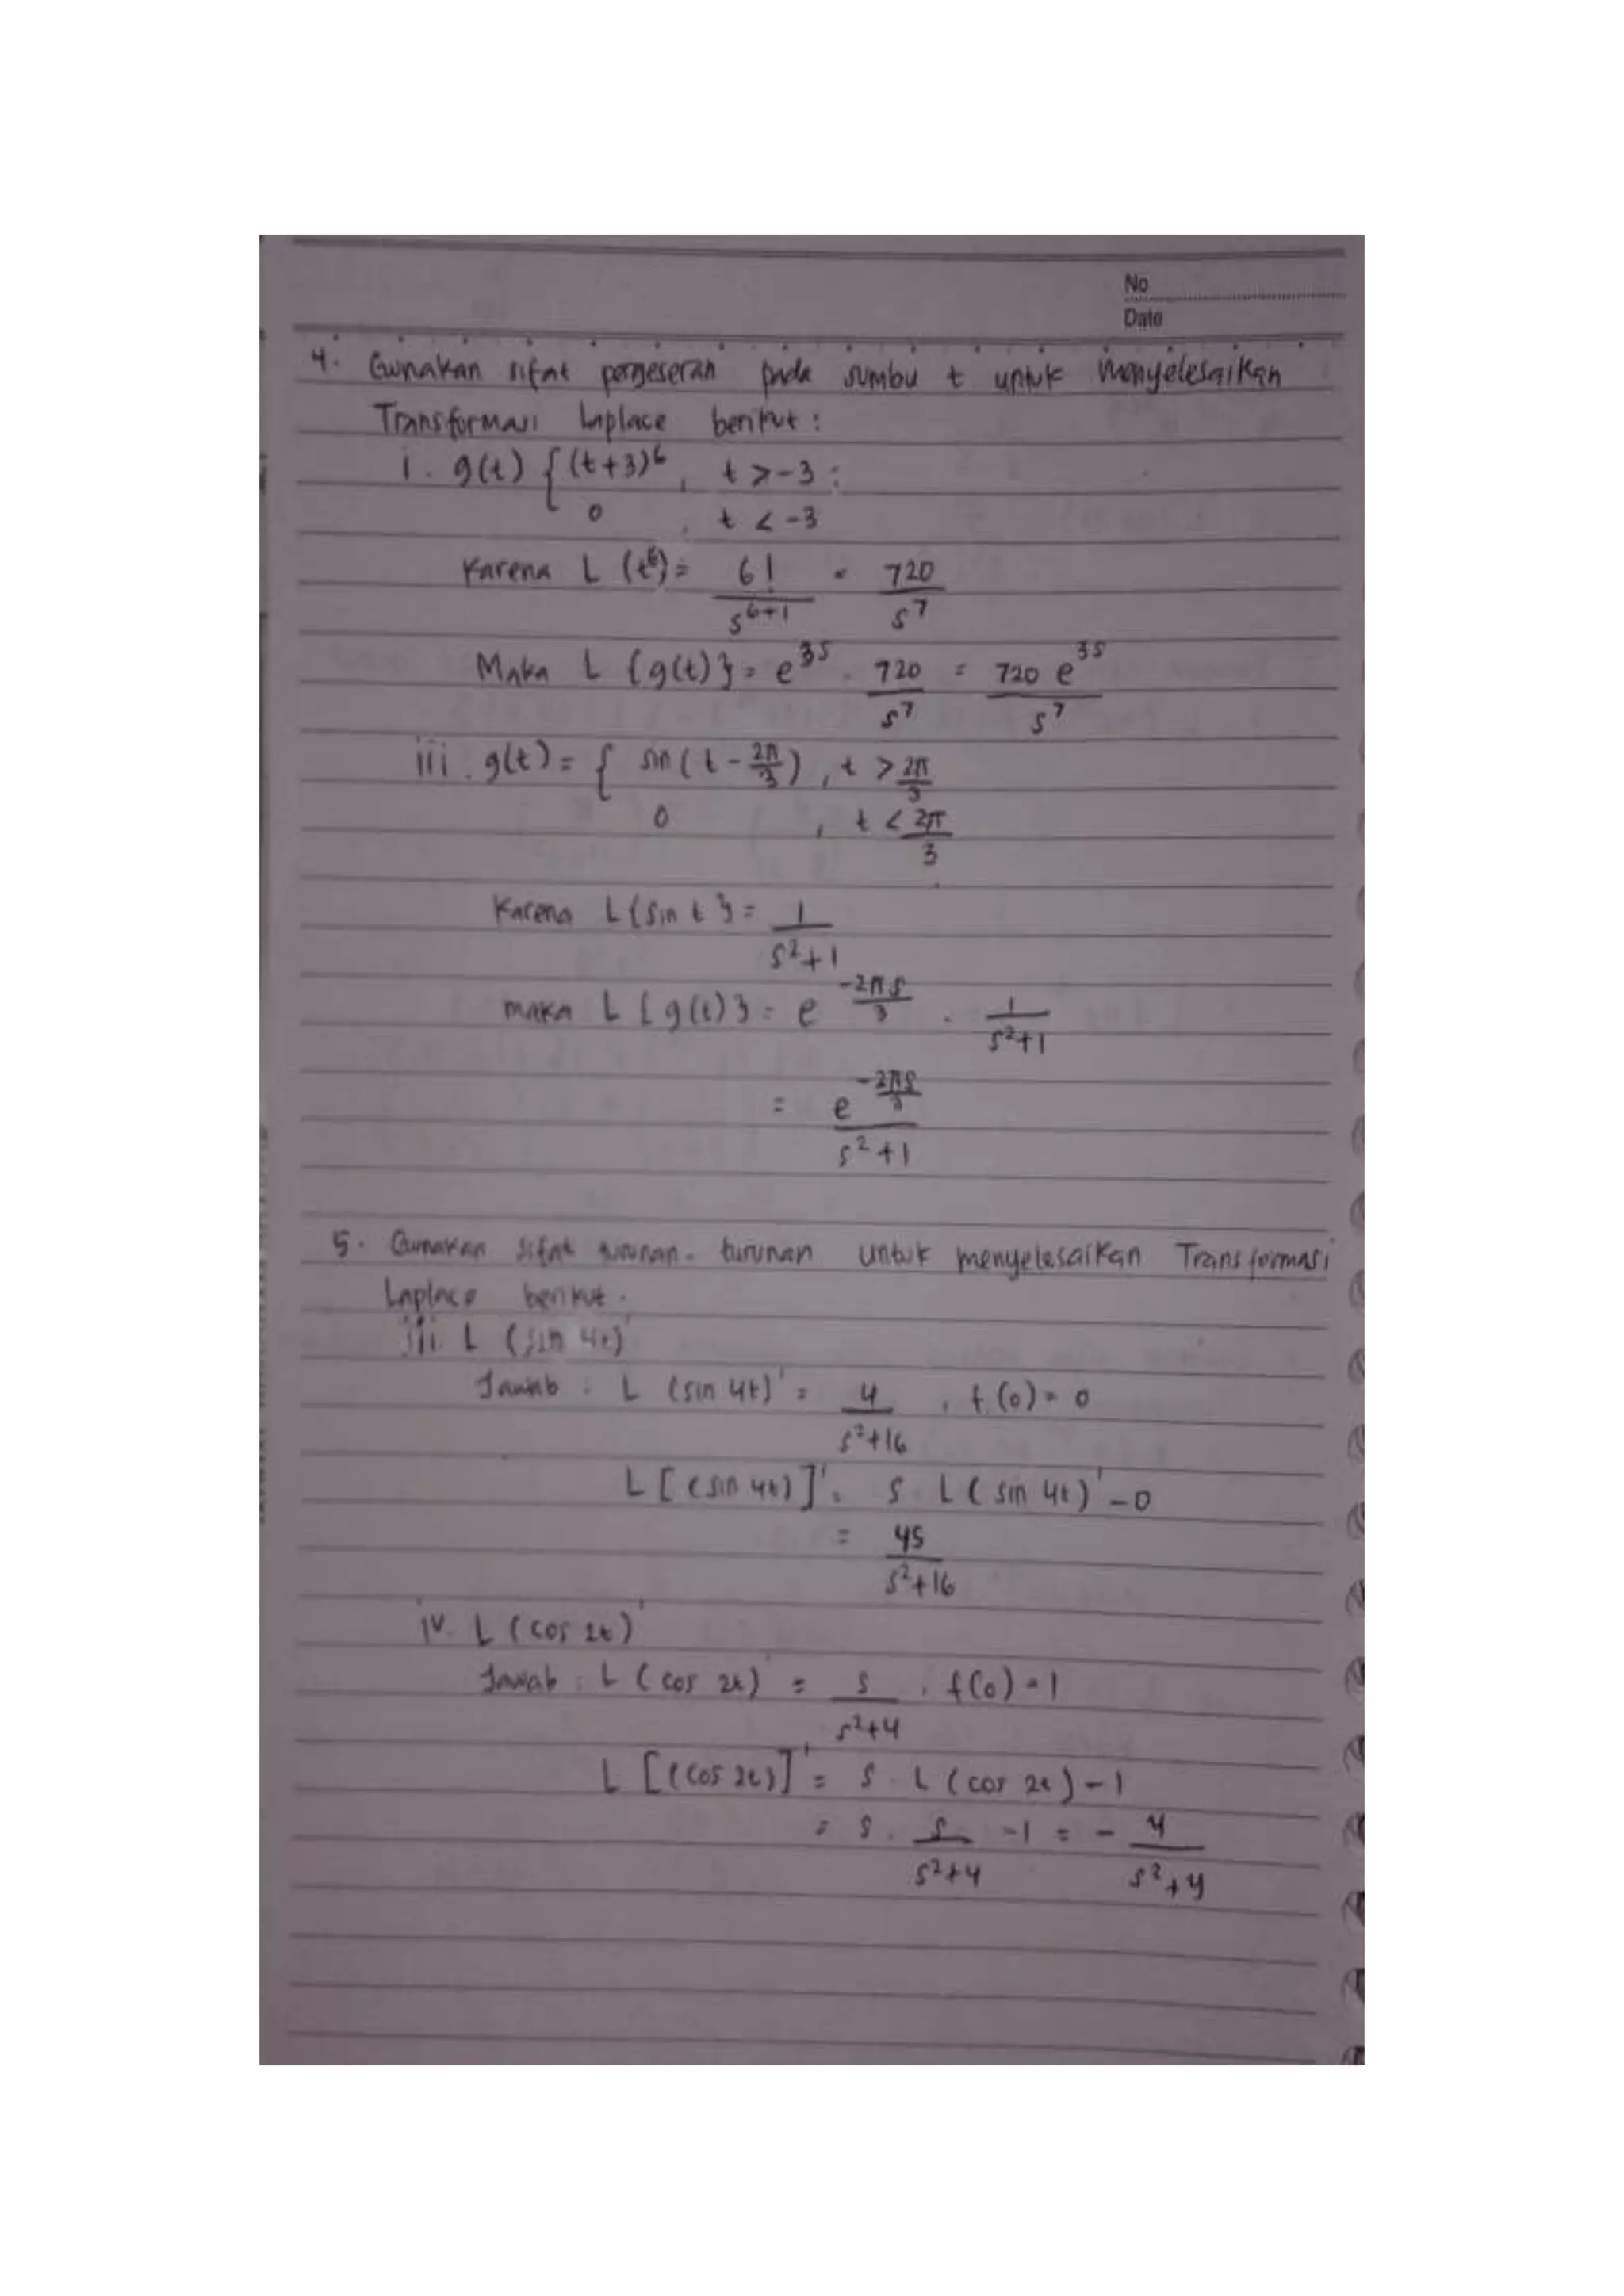 No
Date
4. Gunakan sifat pergeseran pada sumbu t untuk menyelesaikan
Transformasi Laplace berikut :
i. g(t) { (t+3)^6 , t > -3 :
0 , t < -3
Karena L (t^6) = 6!/s^(6+1) = 720/s^7
Maka L {g(t)} = e^(3s) . 720/s^7 = 720 e^(3s)/s^7
iii. g(t) = { sin (t - 2π/3) , t > 2π/3
0 , t < 2π/3
Karena L{sin t} = 1/(s²+1)
maka L {g(t)} = e^(-2πs/3) . 1/(s²+1)
= e^(-2πs/3)/(s²+1)
5. Gunakan sifat turunan-turunan untuk menyelesaikan Transformasi
Laplace berikut.
iii. L (sin 4t)'
Jawab : L (sin 4t)' = 4/(s²+16) , f(0) = 0
L [(sin 4t)]' = s L (sin 4t)' - 0
= 4s/(s²+16)
iv. L (cos 2t)'
Jawab : L (cos 2t) = s/(s²+4) , f(0) = 1
L [(cos 2t)]' = s . L (cos 2t) - 1
= s . s/(s²+4) - 1 = - 4/(s²+4)